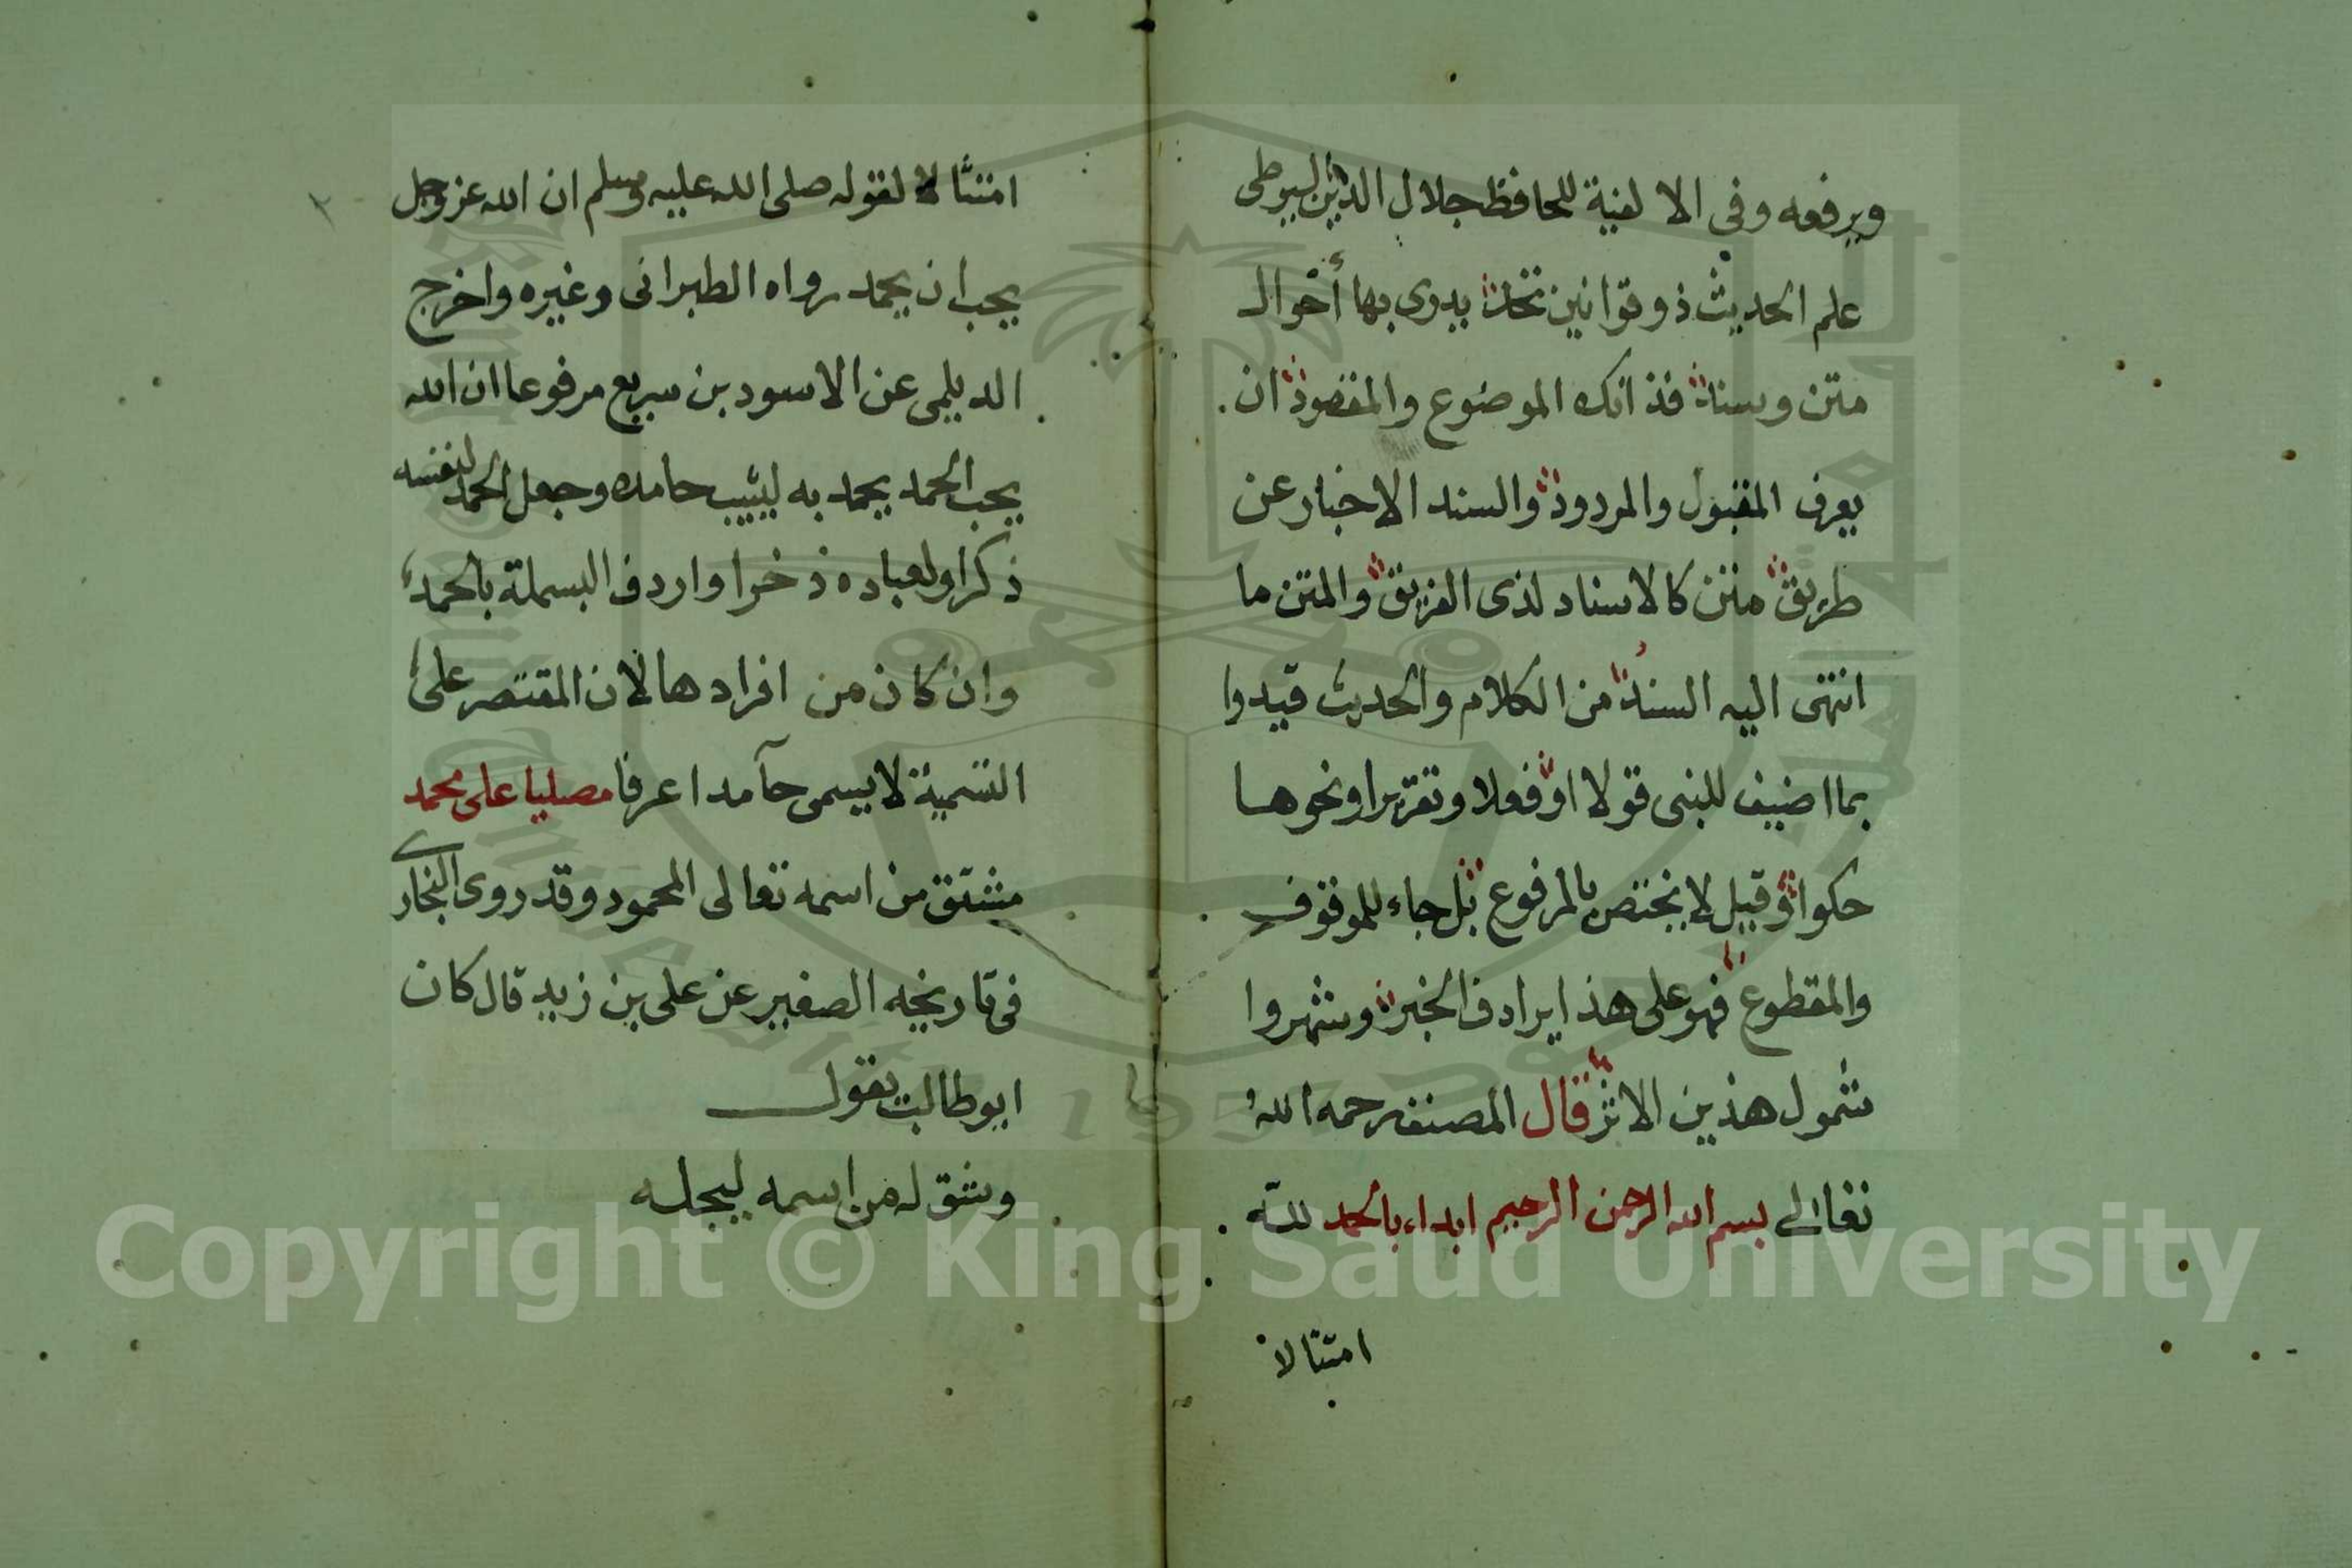 ويرفعه وفى الالفية للحافظ جلال الدين السيوطى
علم الحديث ذو قوانين تحد يدرى بها أحوال
متن وسند فذانك الموضوع والمقصود ان
يعرف المقبول والمردود والسند الاخبار عن
طريق متن كالاسناد لذى الفريق والمتن ما
انتهى اليه السند من الكلام والحديث قيدوا
بما اضيف للنبى قولا او فعلا وتقريرا ونحوها
حكوا وقيل لا يختص بالمرفوع بل جاء للموقوف
والمقطوع فهو على هذا يرادف الخبر وشهروا
شمول هذين الاثر قال المصنف رحمه الله
تعالى بسم الله الرحمن الرحيم ابداء بالحمد لله
امتثالا
امتثالا لقوله صلى الله عليه وسلم ان الله عز وجل
يحب ان يحمد رواه الطبرانى وغيره واخرج
الديلمى عن الاسود بن سريع مرفوعا ان الله
يحب الحمد يحمد به ليثيب حامده وجعل الحمد لنفسه
ذكرا ولعباده ذخرا واردف البسملة بالحمد
وان كان من افرادها لان المقتصر على
التسمية لا يسمى حآمدا عرفا مصليا على محمد
مشتق من اسمه تعالى المحمود وقد روى البخارى
فى تاريخه الصغير عن على بن زيد قال كان
ابو طالب يقول
وشق له من اسمه ليجله
٢
Copyright © King Saud University
1957